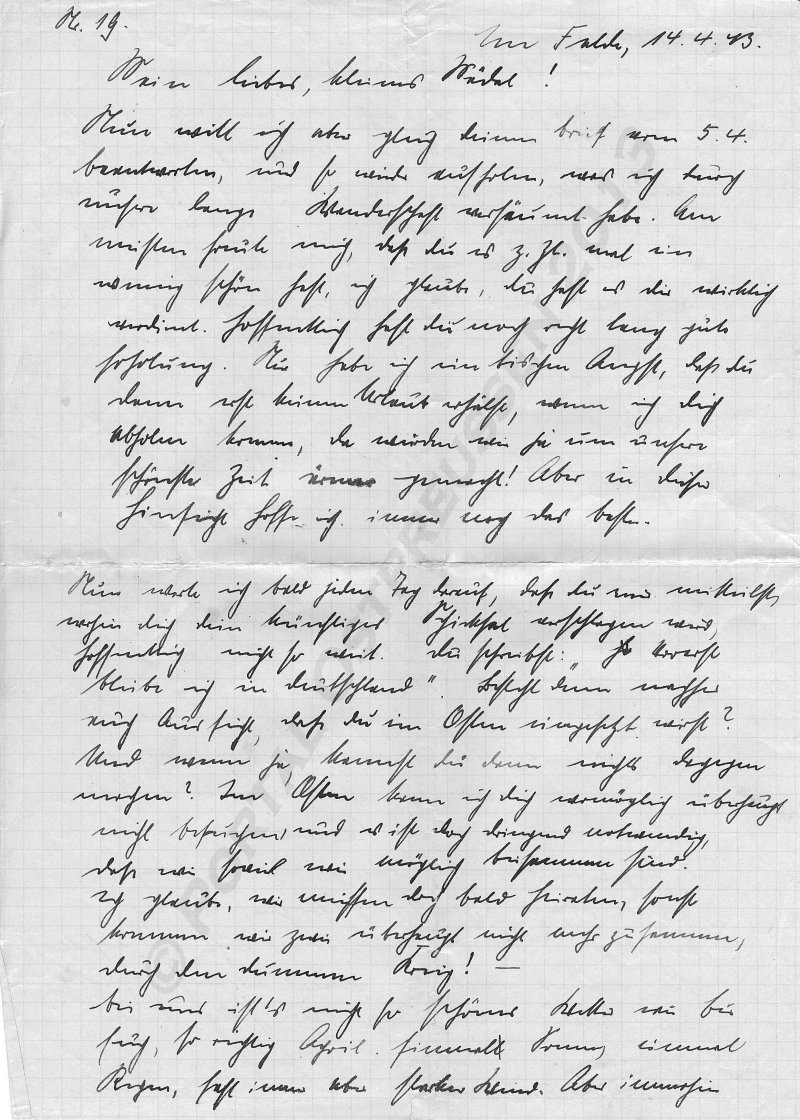 Nr. 19.
Im Felde, 14.4.43.
Mein liebes, kleines Mädel!
Nun will ich aber gleich deinen Brief vom 5.4.
beantworten, und so wieder aufholen, was ich durch
unsere lange Wanderschaft versäumt habe. Am
meisten freute mich, daß du es z. Zt. mal ein
wenig schön hast, ich glaube, du hast es dir wirklich
verdient. Hoffentlich hast du noch recht lang gute
Erholung. Nur habe ich ein bischen Angst, daß du
dann erst keinen Urlaub erhälst, wenn ich dich
abholen komme, da würden wir ja um unsere
schönste Zeit ärmer gemacht! Aber in dieser
Hinsicht hoffe ich immer noch das beste.
Nun warte ich bald jeden Tag darauf, daß du mir mitteilst,
wohin dich dein künftiges Schicksal verschlagen wird,
hoffentlich nicht so weit. Du schreibst: „Vorerst
bleibe ich in Deutschland“. Besteht denn nachher
auch Aussicht, daß du im Osten eingesetzt wirst?
Und wenn ja, kannst du dann nichts dagegen
machen? Im Osten kann ich dich womöglich überhaupt
nicht besuchen und es ist doch dringend notwendig,
daß wir soviel wie möglich beisammen sind.
Ich glaube, wir müssen doch bald heiraten, sonst
kommen wir zwei überhaupt nicht mehr zusammen,
durch den dummen Krieg! —
Bei uns ist's nicht so schönes Wetter wie bei
Euch, so richtig April. Einmal Sonne, einmal
Regen, fast immer aber starker Wind. Aber immerhin
© PORTAL-OSTPREUSSEN 2013